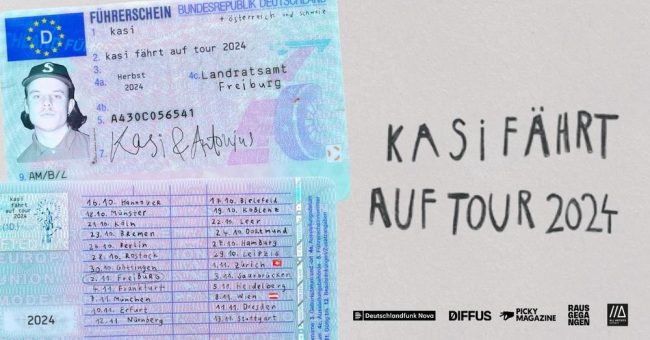 FÜHRERSCHEIN BUNDESREPUBLIK DEUTSCHLAND
+ österreich und schweiz
D
1. kasi
2. kasi fährt auf tour 2024
3.
4a. Herbst 2024
4c. Landratsamt Freiburg
4b.
5. A430C056541
7. Kasi & Antonius
9. AM/B/L
kasi
fährt
auf tour
2024
16.10. Hannover
17.10. Bielefeld
18.10. Münster
19.10. Koblenz
21.10. Köln
22.10. Leer
23.10. Bremen
24.10. Dortmund
26.10. Berlin
27.10. Hamburg
28.10. Rostock
29.10. Leipzig
30.10. Göttingen
1.11. Zürich
2.11. Freiburg
3.11. Saarbrücken
4.11. Frankfurt
5.11. Heidelberg
7.11. München
8.11. Wien
10.11. Erfurt
11.11. Dresden
12.11. Nürnberg
13.11. Stuttgart
2024
KASI FÄHRT
AUF TOUR 2024
Deutschlandfunk Nova
DIFFUS
PICKY
MAGAZINE
RAUS
GEGA
NGEN